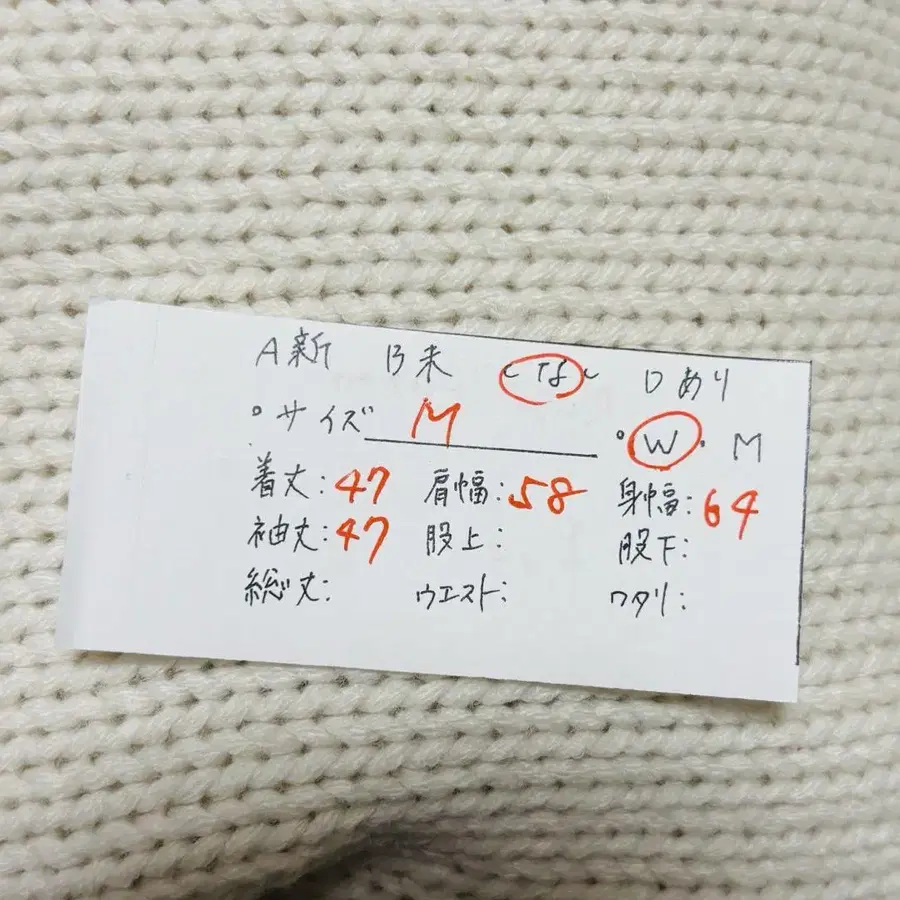 A新 B未 Cなし Dあり
°サイズ M °W・M
着丈:47 肩幅:58 身幅:64
袖丈:47 股上: 股下:
総丈: ウエスト: ワタリ: